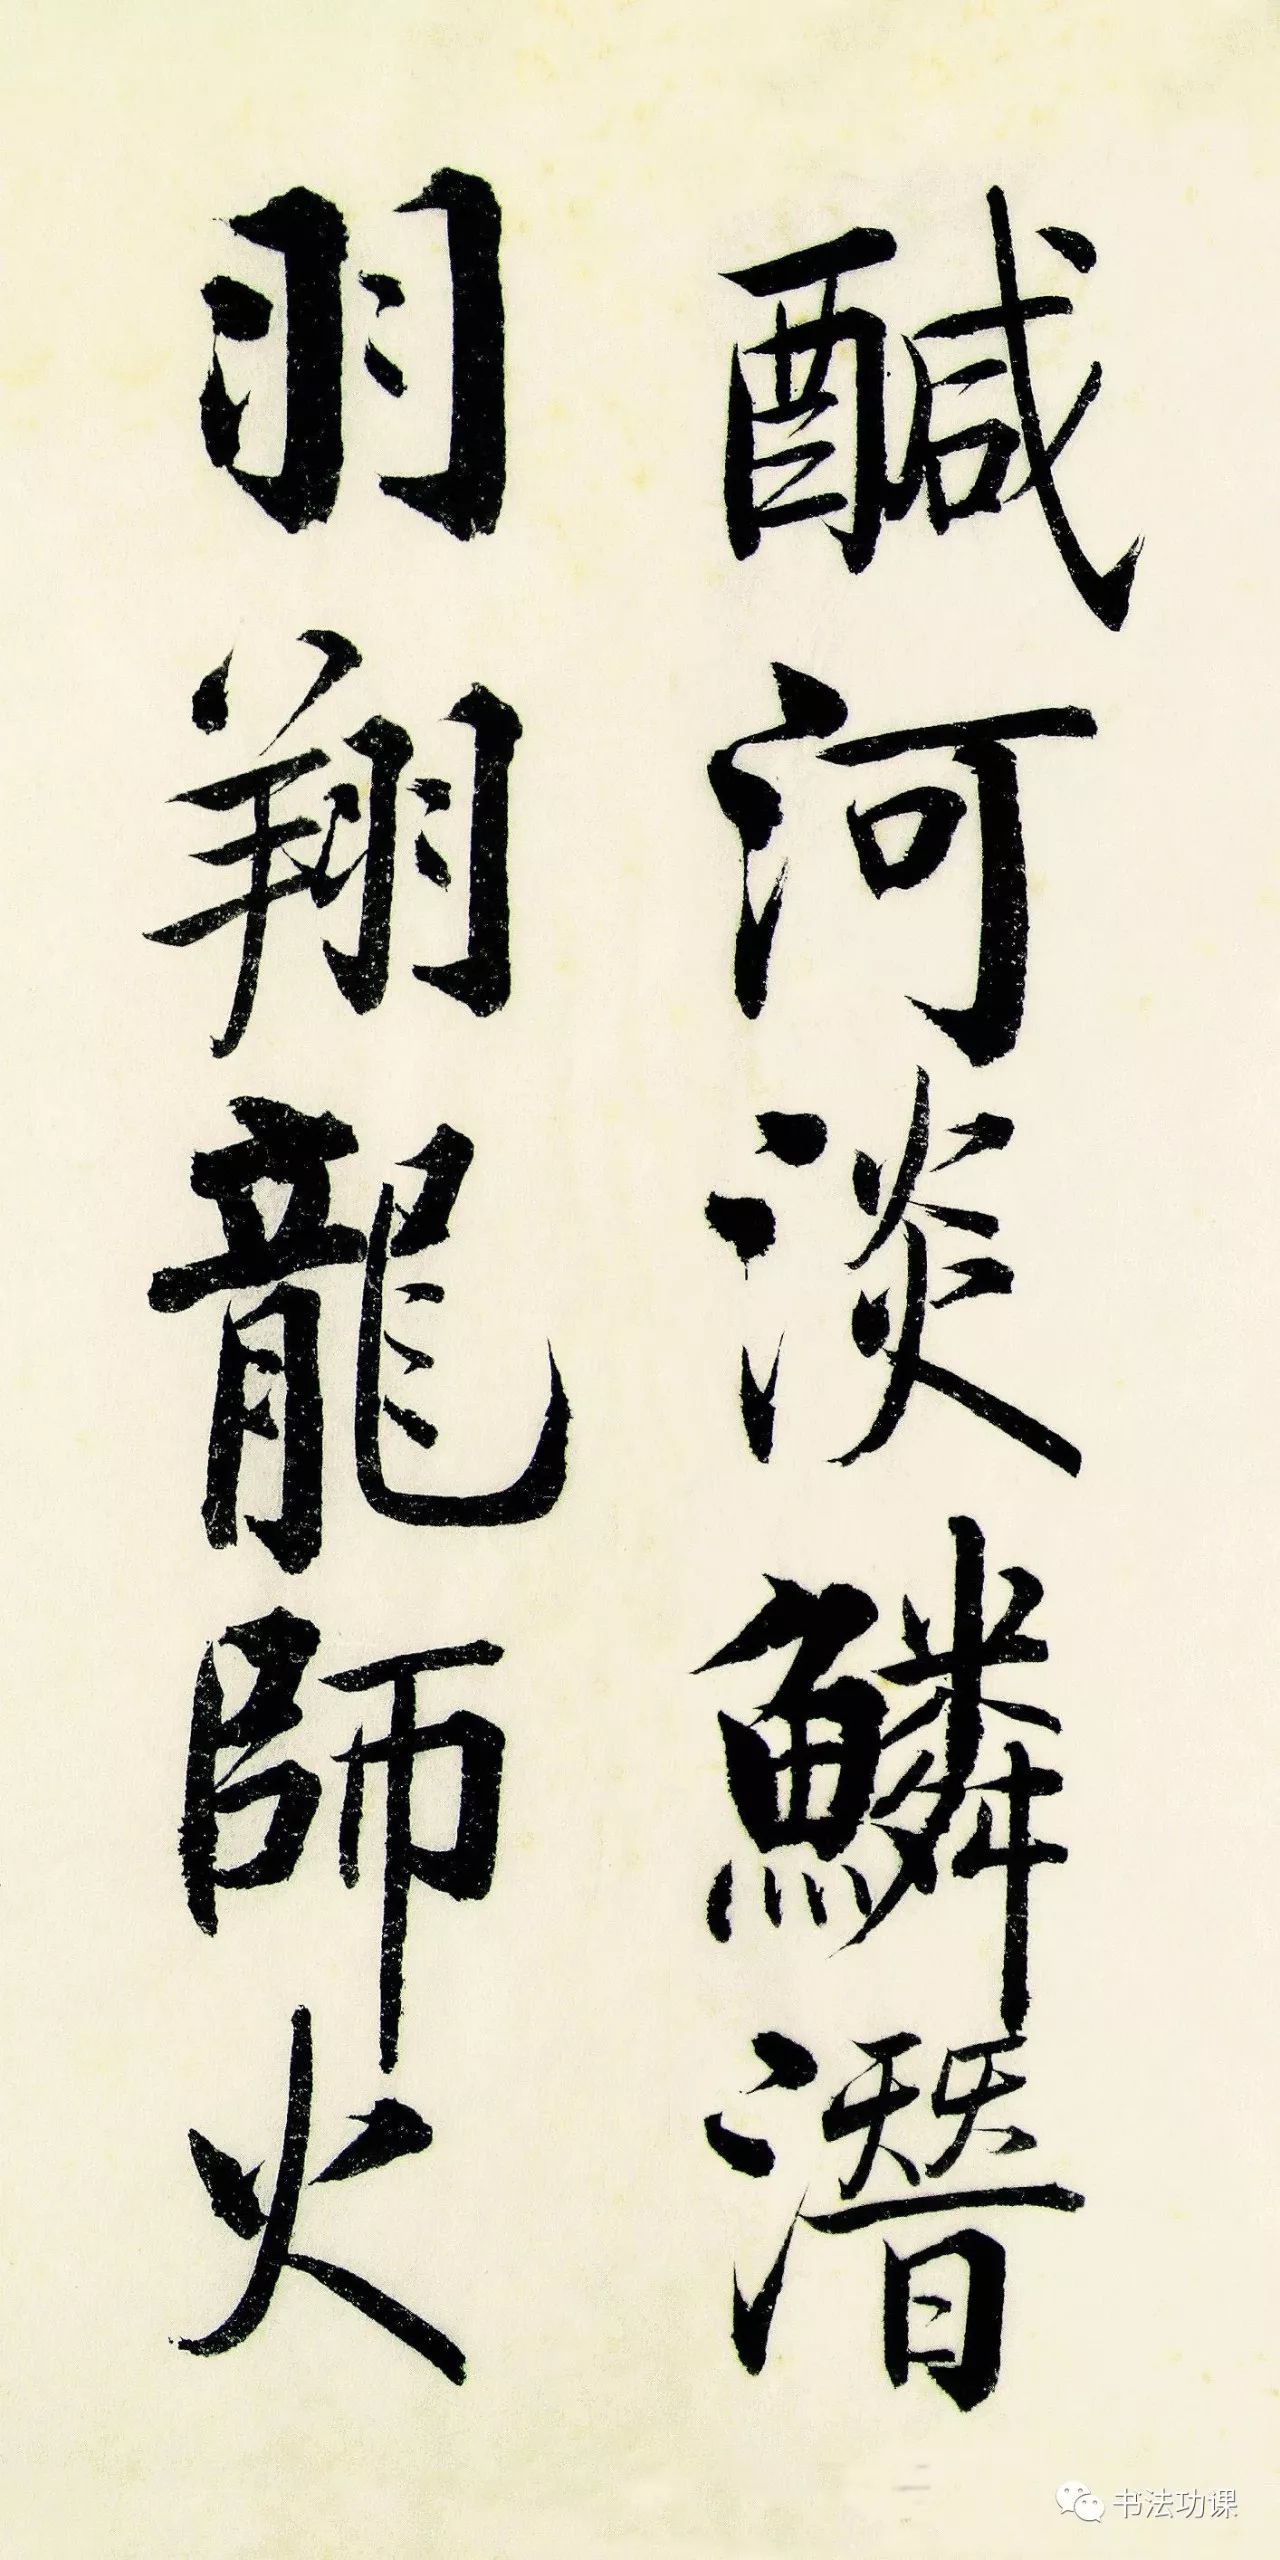 醎河淡鱗潛
羽翔龍師火
书法功课